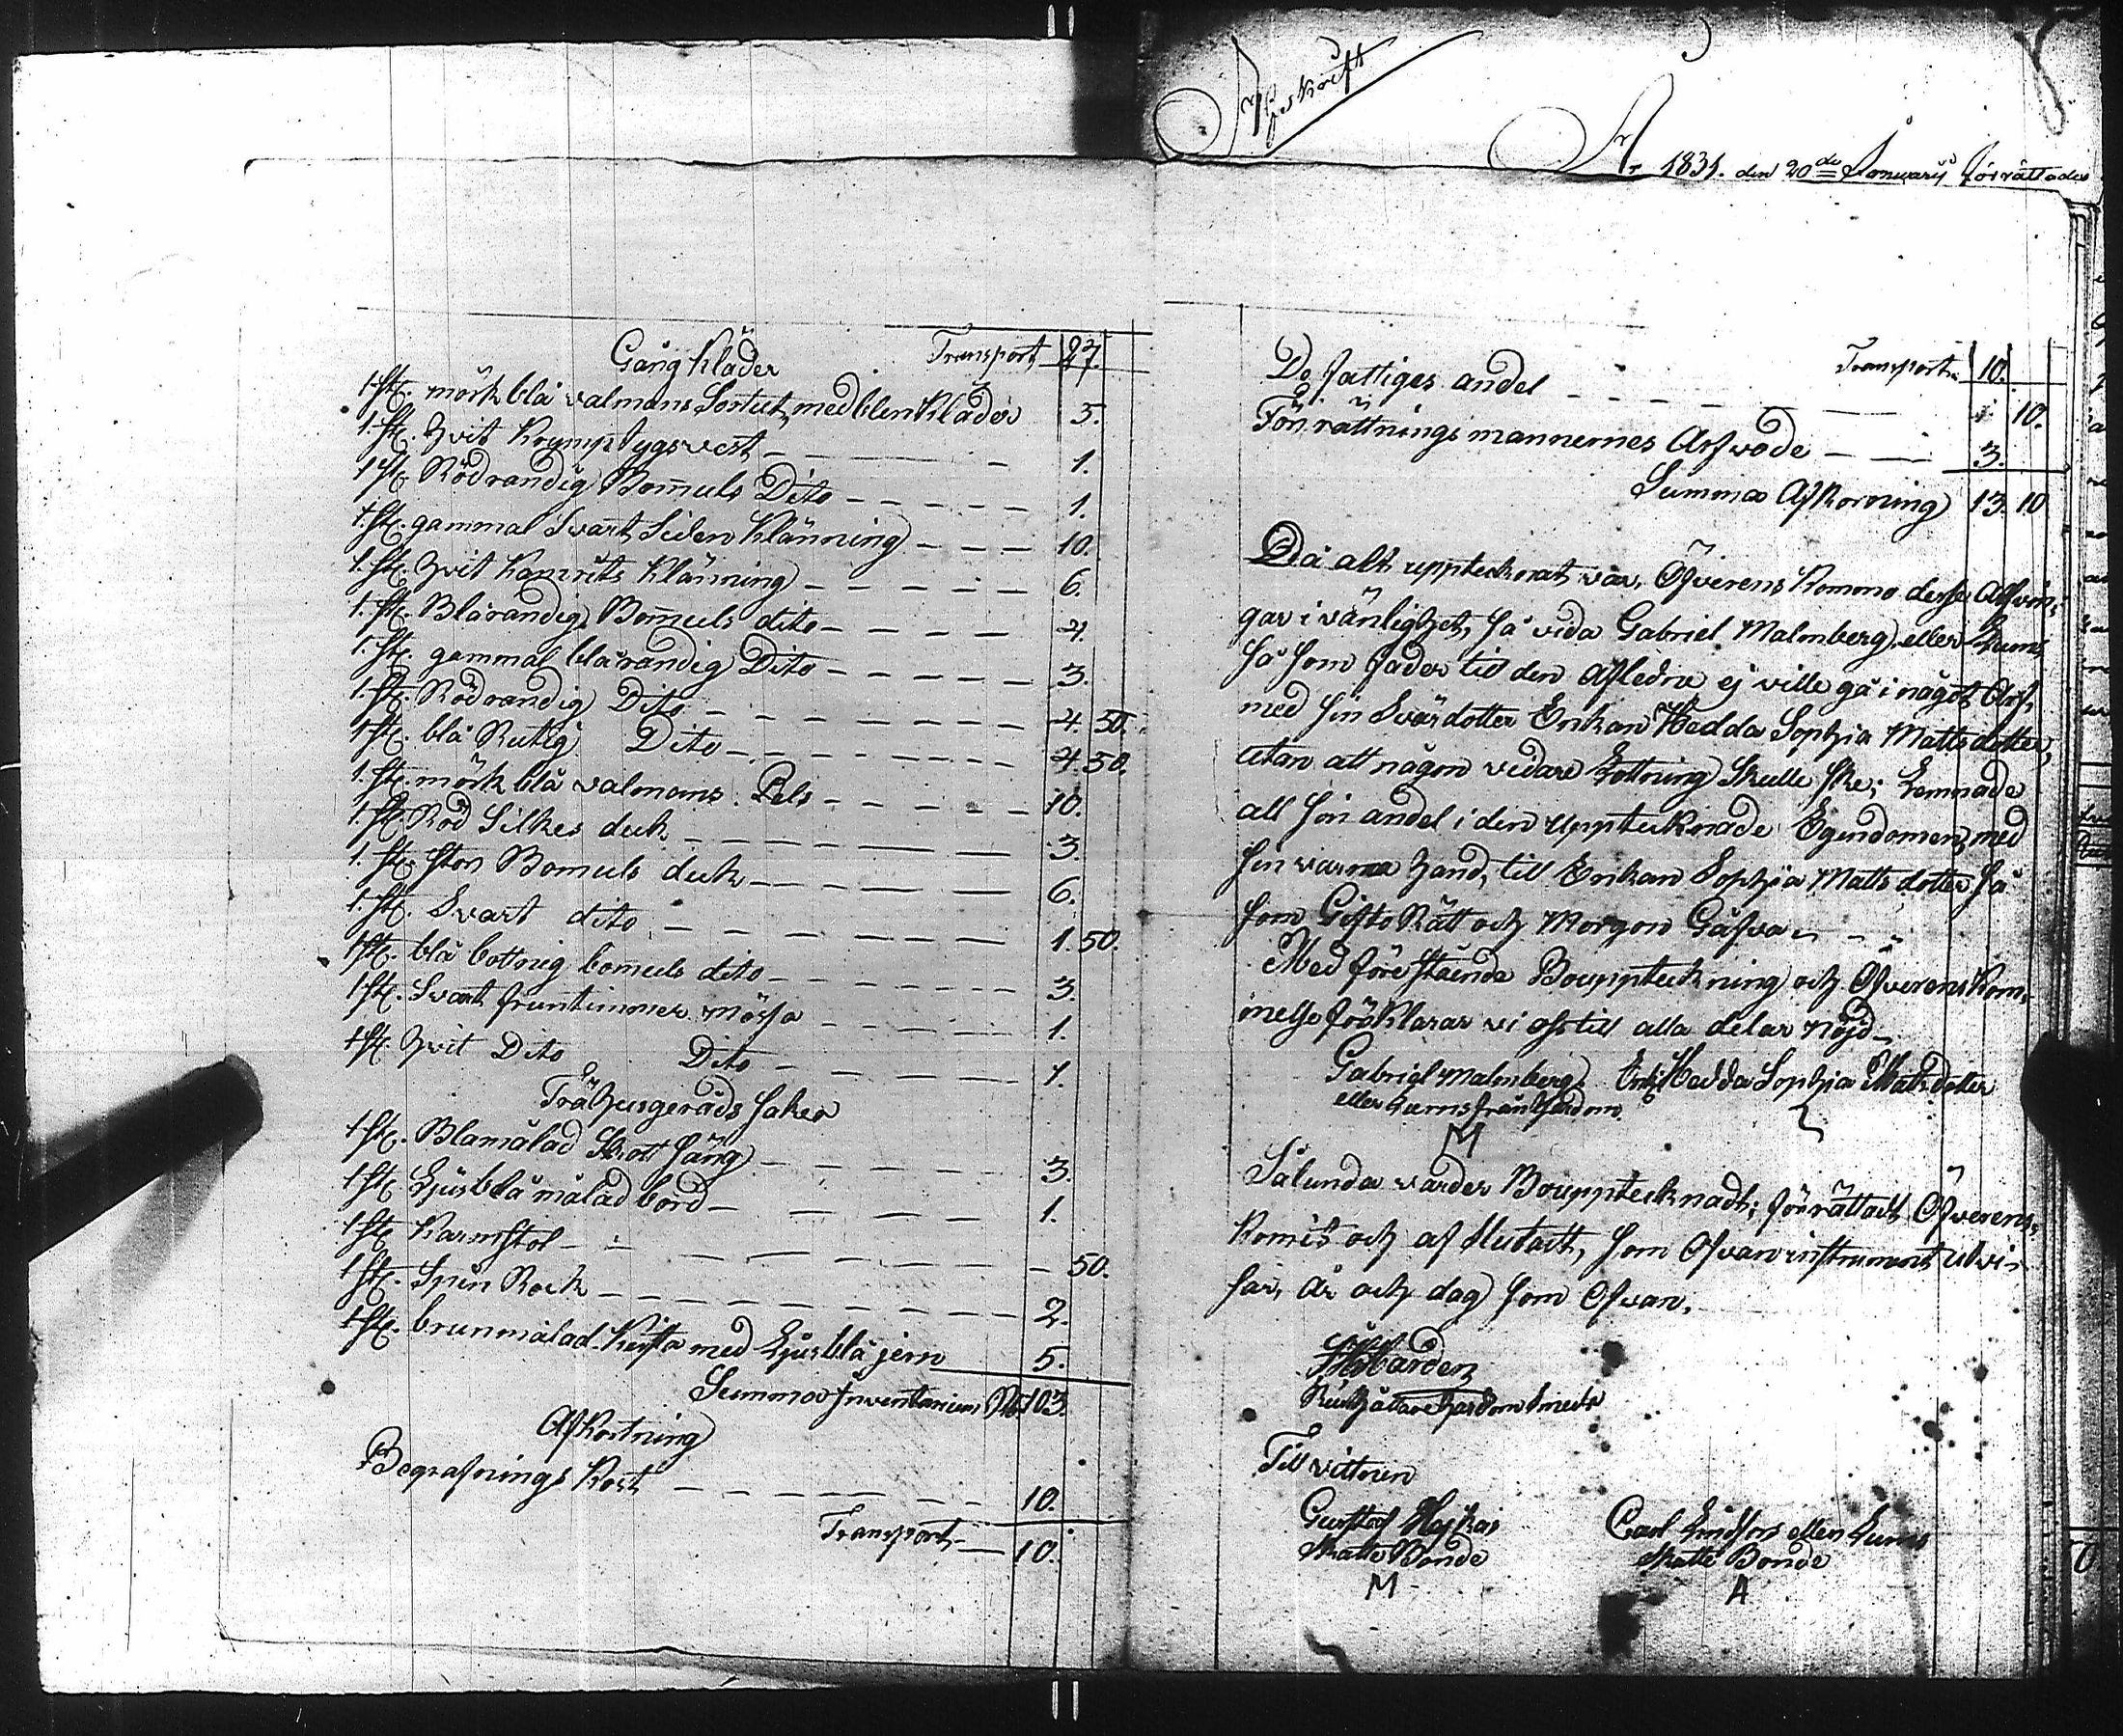 Gång Kläder Transport 27.
1. st. mörk blå valmans Sortut, med blen Kläder 5.
1. st. hvit Krymp tygs vest 1.
1 st. Rödrandig Bomuls Dito 1.
1. st. gammal Svart Siden Klänning 10.
1. st. hvit Klänning 6.
1. st. Blårandig Bomuls dito 4.
1. st. gammal blårandig Dito 3.
1. st. Rödrandig Dito 4. 50.
1 st. blå Rutig Dito 4 50.
1. st. mörk blå valmans Pels 10.
1 st. Röd Silkes duk 3.
1. st. stor Bomuls duk 6.
1. st. Svart dito 1. 50.
1 st. blå bottnig bomuls dito 3.
1 st. Svart fruntimmer mössa 1.
1 st. hvit Dito Dito 1.
Trähusgeråds saker
1 st. Blamålad Skott säng 3.
1 st. Ljusblå målad bord 1.
1 st. Karmstol 50.
1 st. Spin Rock 2.
1 st. brunmålad Kista med Ljusblå jern 5.
Summa Inventarium Rb 103.
Afkortning
Begrafnings Kost 10.
Transport 10.
Afskrift
År 1831. den 20de Januarij förrättades
Transport 10.
De fattiges andel 10.
Förrättnings mannernes Arfvode 3.
Summa Afkortning 13. 10
Då alt upptecknat var, Öfverens Kommo desse Arfvin-
gar i vänlighet, så vida Gabriel Malmberg eller Lums
så som fader till den Afledne ej ville gå i något Arf,
med sin Svärdotter Enkan Hedda Sophia Mattsdotter,
utan att någon vidare Lottning Skulle ske; Lemnade
all sin andel i den upptecknade Egendomen, med
sin varma hand, till Enkan Sophia Matts dotter så
som Gifto Rätt och Morgon Gåfva
Med förestående Bouppteckning och Öfverenskom-
melse förklarar vi oss till alla delar nöjd
Gabriel Malmberg Enk. Hedda Sophia Mattsdotter
eller Lums från
M
Sålunda varder Bouppteknadt, förrättadt Öfverens-
komit och af slutadt, som Ofvan instrument utvi-
sar, år och dag som Ofvan.
Till vittnen
Gustaf Carl Lindfors eller Lums
Skatte Bonde Skatte Bonde
M A